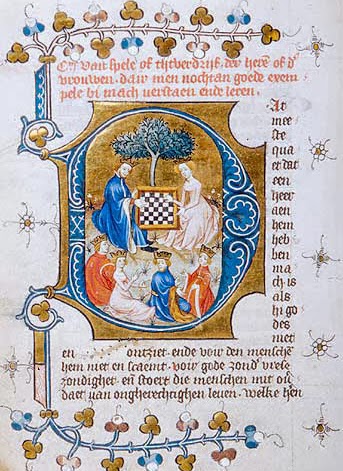 Een van spele of tijtverdrijf der here of d'
vrouwen. dair men nochtan goede exem
pele bi mach verstaen ende leren.
Dat
mee
ste
qua
et dat
een
heer
aen
hem
heb
ben
ma
ch is
als
hi god
des
niet
en ontziet ende voir den mensche
hem niet en scaemt. voir gode zond' vrese
zondighet. en stoert die menschen mit
daet van ongherechtighen leuen. welke